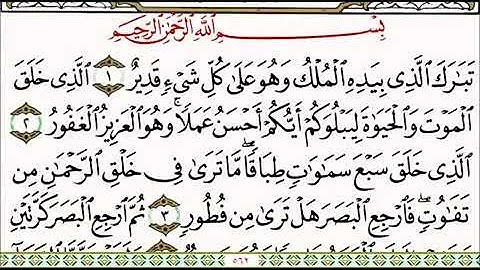 بِسْمِ اللَّهِ الرَّحْمَٰنِ الرَّحِيمِ
تَبَارَكَ الَّذِي بِيَدِهِ الْمُلْكُ وَهُوَ عَلَىٰ كُلِّ شَيْءٍ قَدِيرٌ ١ الَّذِي خَلَقَ
الْمَوْتَ وَالْحَيَاةَ لِيَبْلُوَكُمْ أَيُّكُمْ أَحْسَنُ عَمَلًا ۚ وَهُوَ الْعَزِيزُ الْغَفُورُ ٢
الَّذِي خَلَقَ سَبْعَ سَمَاوَاتٍ طِبَاقًا ۖ مَّا تَرَىٰ فِي خَلْقِ الرَّحْمَٰنِ مِن
تَفَاوُتٍ ۖ فَارْجِعِ الْبَصَرَ هَلْ تَرَىٰ مِن فُطُورٍ ٣ ثُمَّ ارْجِعِ الْبَصَرَ كَرَّتَيْنِ
٥٦٢